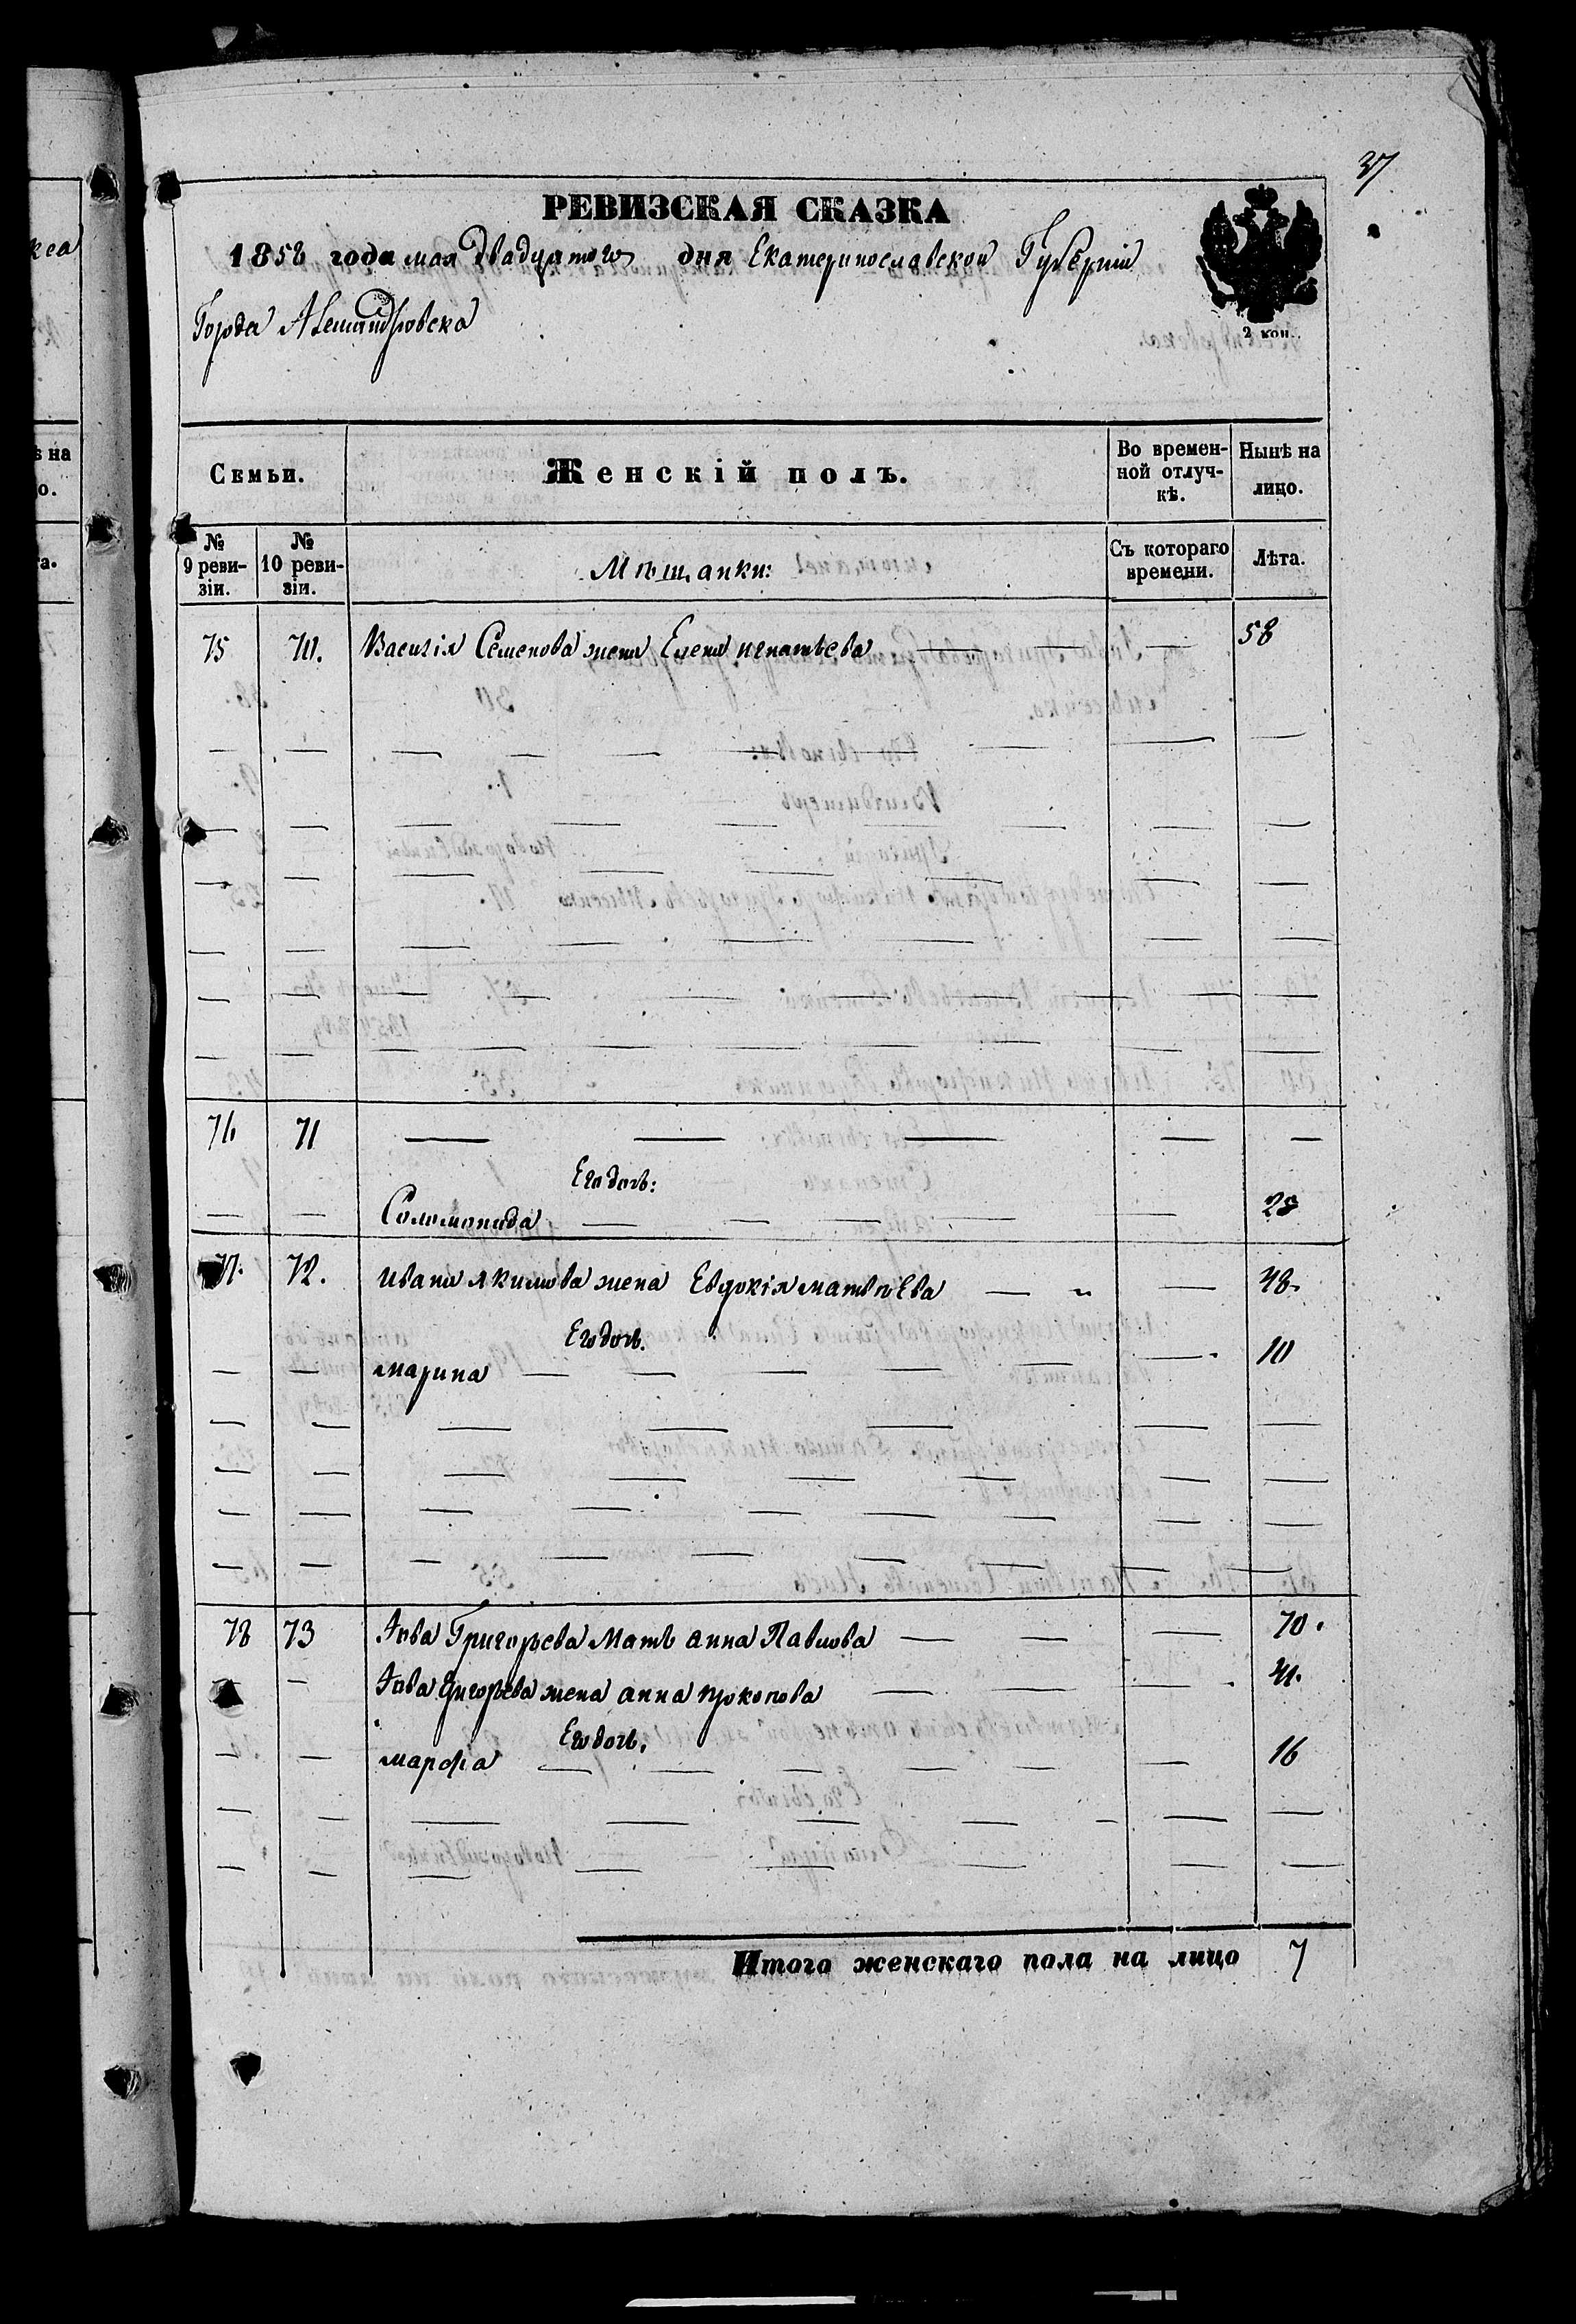 37
РЕВИЗСКАЯ СКАЗКА
1858 года мая двадцятого дня Екатеринославской Губерніи
Города Александровска
2 коп.
Семьи.
Женскій полъ.
Во времен-
ной отлуч-
кѣ.
Нынѣ на
лицо.
№
9 реви-
зіи.
№
10 реви-
зіи.
Мѣщанки:
Съ котораго
времени.
Лѣта.
75 70. Василія Семенова жена Елена игнатьева — — — 58
76 71 — — — — —
Его дочь:
— — Соломонида — — — — — 28
77. 72. Ивана якимова жена Евдокія матвѣева — „ — 48.
Его дочь.
— — марина — — — — — — 10
78 73 Іова Григорьева Мать анна Павлова — — — 70.
— Іова Григорьева жена анна прокопова — — — 41.
Его дочь.
— — марфа — — — — — — 16
Итого женскаго пола на лицо 7
кса
ѣ на
о.
а.